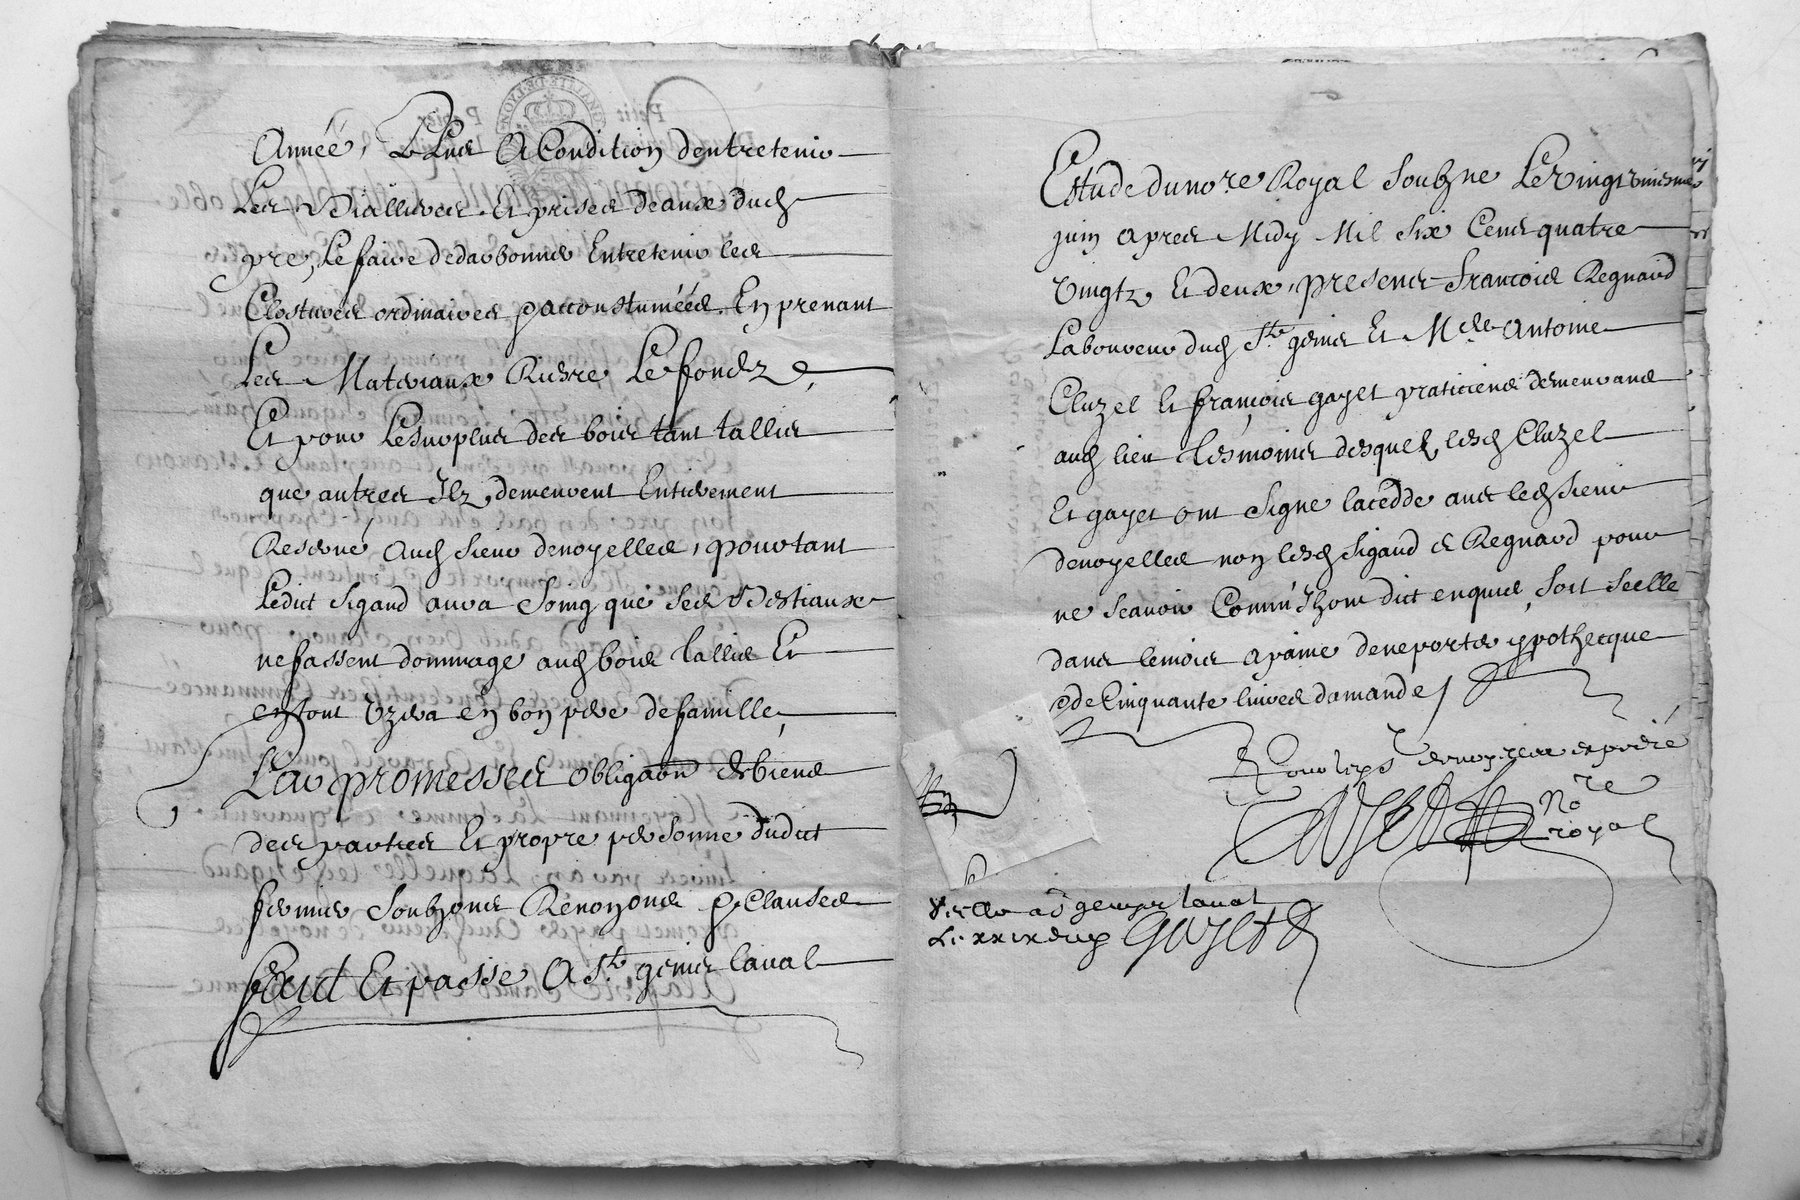 Année, Le Luer A Condition dentretenir
Les Biallieres Et prises deaux dud
pre, Le faire dedarbonner Entretenir les
Clostures ordinaires pnaccoustuméés En prenant
Les Materiaux Riere Le fondz,
Et pour Lesurplus des bois tant tallis
que autres Ilz demeurent Entierement
Reserve Aud sieur denoyelles, pourtant
Ledict sigaud aura soing que ses Bestiaux
nefassent dommage aud bois tallis Et
en tout Uzera en bon pere defamille,
Par promesses obligaon de biens
des parties Et propre personne dudict
fermier Soubzons Renonons & Clauses
faict Et passe A St genis laval
Estude du nore Royal Soubzne Le vingt
juin apres Midy Mil Six Cens quatre
vingtz Et deux, presens francois Regnaud
Laboureur dud St genis Et Mre Antoine
Cluzel Et françois gayet praticiens demeurans
aud lieu tesmoins desquelz lesd Cluzel
Et gayet ont signe lacedde avec led sieur
denoyelles non lesd sigaud & Regnaud pour
ne scavoir Comm Ilz ont dict enquis, soit scelle
dans lemois apaine deneporter ypothecque
& de Cinquante livres damande /
denoyelles expedié
Gayet nore
royal
Scelle a St genis laval
Le xxix
Gayet